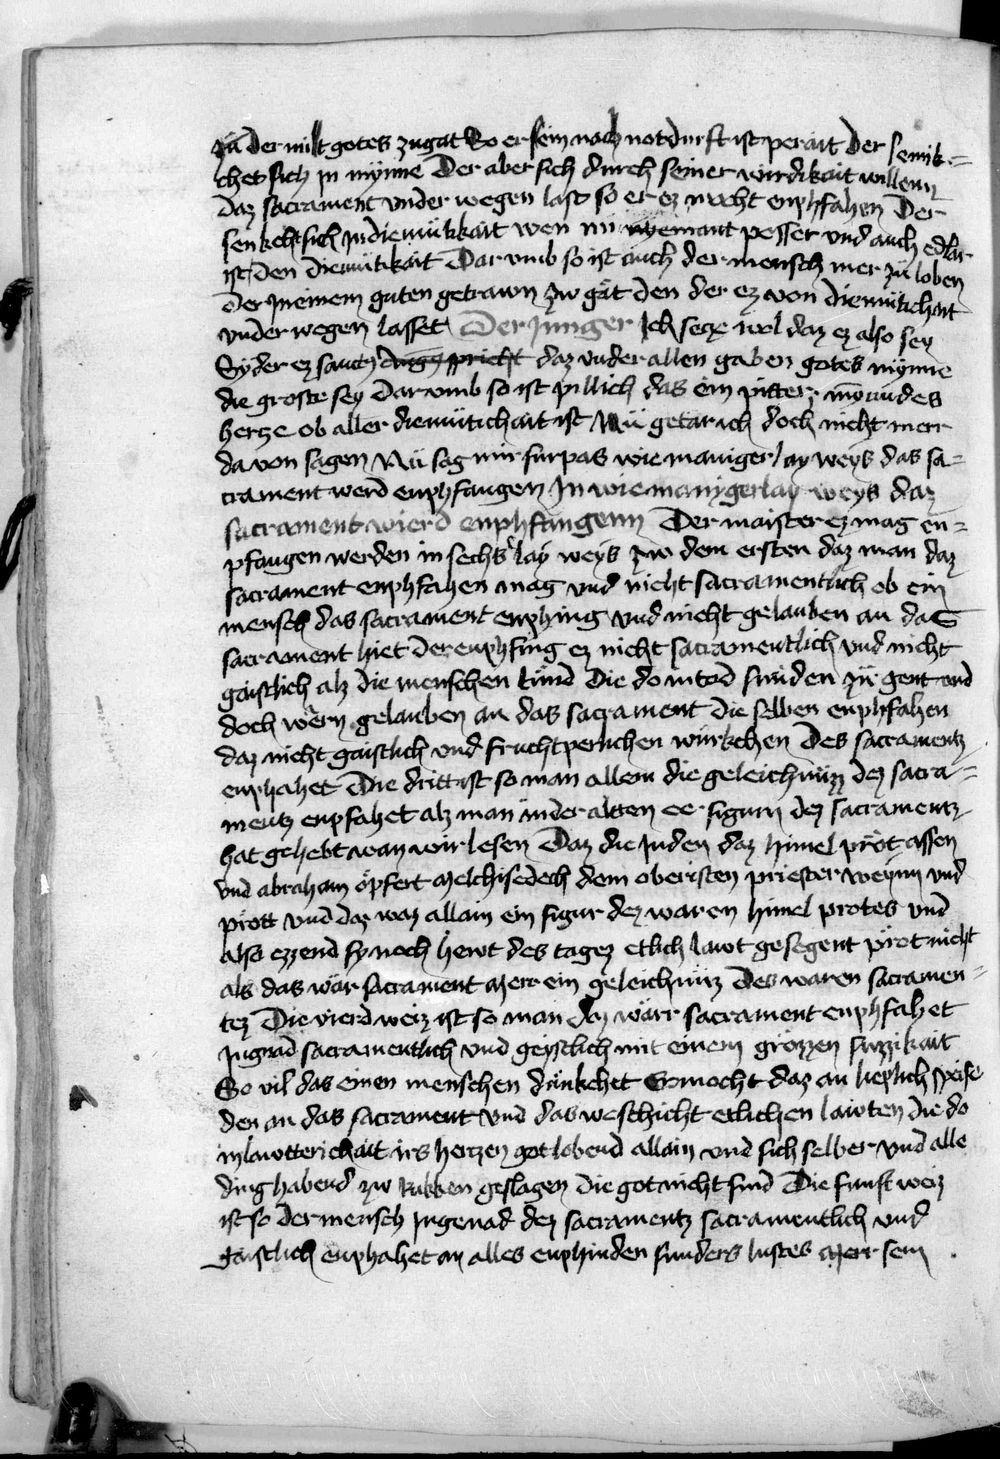 zü der milt gotes zugat So er sein noch notdurft ist perait Der senk=
chet sich in mynne Der aber sich durch seiner wirdikait willenn
daz sacrament vnder wegen last so er ez mocht enphfahen Der
senkcht sich in diemütkait wen nu nyemant pesser vnd auch edler
ist den diemütikait Dar vmb so ist auch der mensch mer zü loben
Der in einem guten getrawn zw gät den der ez von diemütichait
vnder wegen lasset Der Junger Ich secze wol daz ez also sey
Syder ez sanctus daz vnder allen gaben gotes mynne
die groste sey Dar vmb so ist pillich das ein pitter mynndes
hercze ob aller diemütichait ist Nü getar ich doch nicht merr
da von sagen Nü sag mir furpas wie maniger lay weys das sa=
crament werd enphfangen In wie manigerlay weys daz
sacrament wierd enphfangenn Der maister ez mag en=
pfangen werden in sechs lay weys zw dem ersten daz man daz
sacrament enphfahen mag vnd nicht sacramentlich ob ein
mensch das sacrament enphing vnd nicht gelauben an daz
sacrament hiet Der enphfing ez nicht sacramentlich vnd nicht
gaistlich alz die menschen sünd Die do in tod sünden zü gent vnd
doch wern gelauben an das sacrament die selben enphfahen
daz nicht gaistlich vnd fruchtperlichen würkchen Des sacramentz
enphahet Die dritt ist so man allein die geleichnüzz dez sacra=
mentz enpfahet alz man in der alten ee figurn dez sacramentz
hat gehebt wan wir lesen Daz die Juden daz himel pröt assen
vnd abraham öpfert Melchisedech dem oberisten priester weynn vnd
prott vnd daz waz allain ein figur dez waren himel protes vnd
also ezzend sy noch hewt des tagez etlich lawt gesegent pröt nicht
als das wär sacrament Merr ein geleichnüz Des waren sacramen=
tez Die vierd weiz ist so man daz wärr sacrament enphfahet
In gnad sacramentlich vnd geystlich mit einem grözzen süzzikait
So vil das einen menschen dünkchet Er mocht daz an lieplich speise
den an das sacrament vnd das weschicht etlichen lawten die do
in lawtterichait irs herczen got lobend allain vnd sich selber vnd alle
ding habend zw rukken geslagen die got nicht sind Die funft weiz
ist so der mensch in genad dez sacramentz sacramentlich vnd
gaistlich enphahet an alles enphinden sunders lustes Merr sein